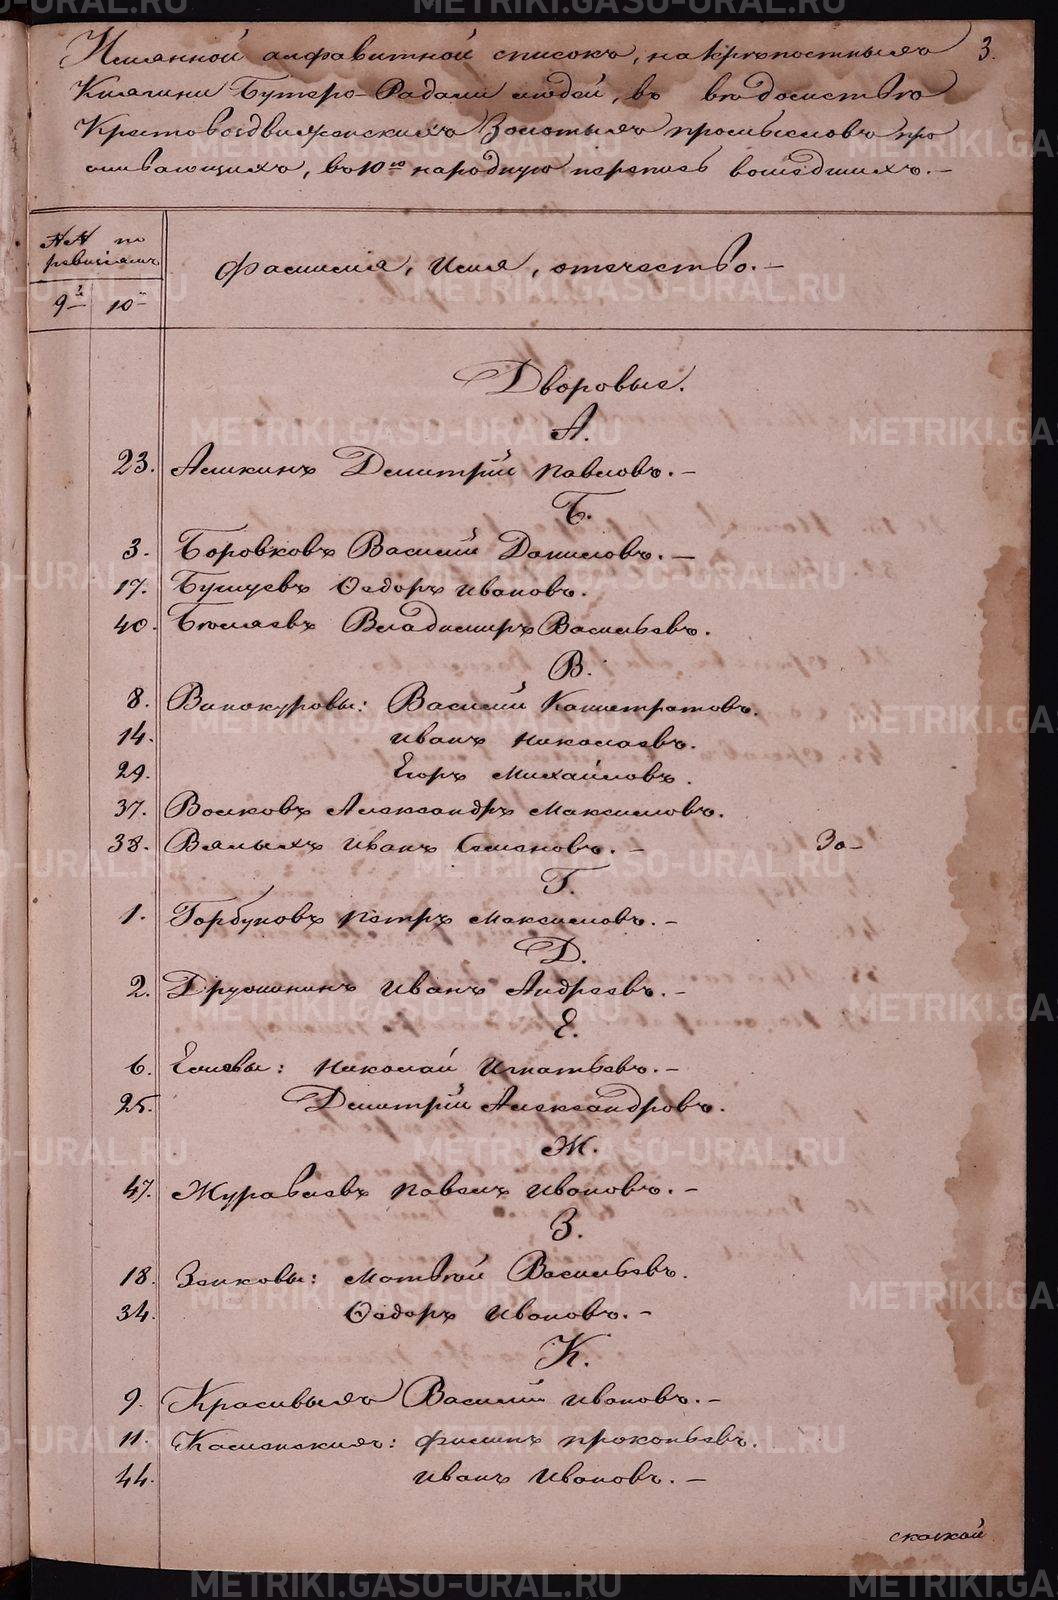 Имянной алфавитной списокъ, на крѣпостныхъ 3.
Княгини Бутеро-Радали людей, въ вѣдомствѣ
Крестовоздвиженскихъ Золотыхъ промысловъ про
живающихъ, въ 10ю народную перепись вошедшихъ.-
NN по
ревизіямъ
9й 10й
Фамилія, Имя, отчество.-
Дворовые.
А.
23. Аликинъ Дмитрій Павловъ.-
Б.
3. Боровковъ Василій Даниловъ.-
17. Бушуевъ Ѳедоръ Ивановъ.
40. Владимиръ Васильевъ.
В.
8. Винокуровы: Василій Калистратовъ.
14. Иванъ Николаевъ.
29. Егоръ Михайловъ.
37. Волковъ Александръ Максимовъ.
38. Вялыхъ Иванъ Семеновъ.-
Г.
1. Горбуновъ Петръ Максимовъ.-
Д.
2. Дружининъ Иванъ Андреевъ.-
Е.
6. Елисвы: Николай Игнатьевъ.-
25. Дмитрій Александровъ.
Ж.
47. Журавлевъ Павелъ Ивановъ.-
З.
18. Зенковы: Матвѣй Васильевъ.
34. Ѳедоръ Ивановъ.-
К.
9. Красивыхъ Василій Ивановъ.-
11. Каменскихъ: Филипъ Прокопьевъ.
44. Иванъ Ивановъ.-
METRIKI.GASO-URAL.RU